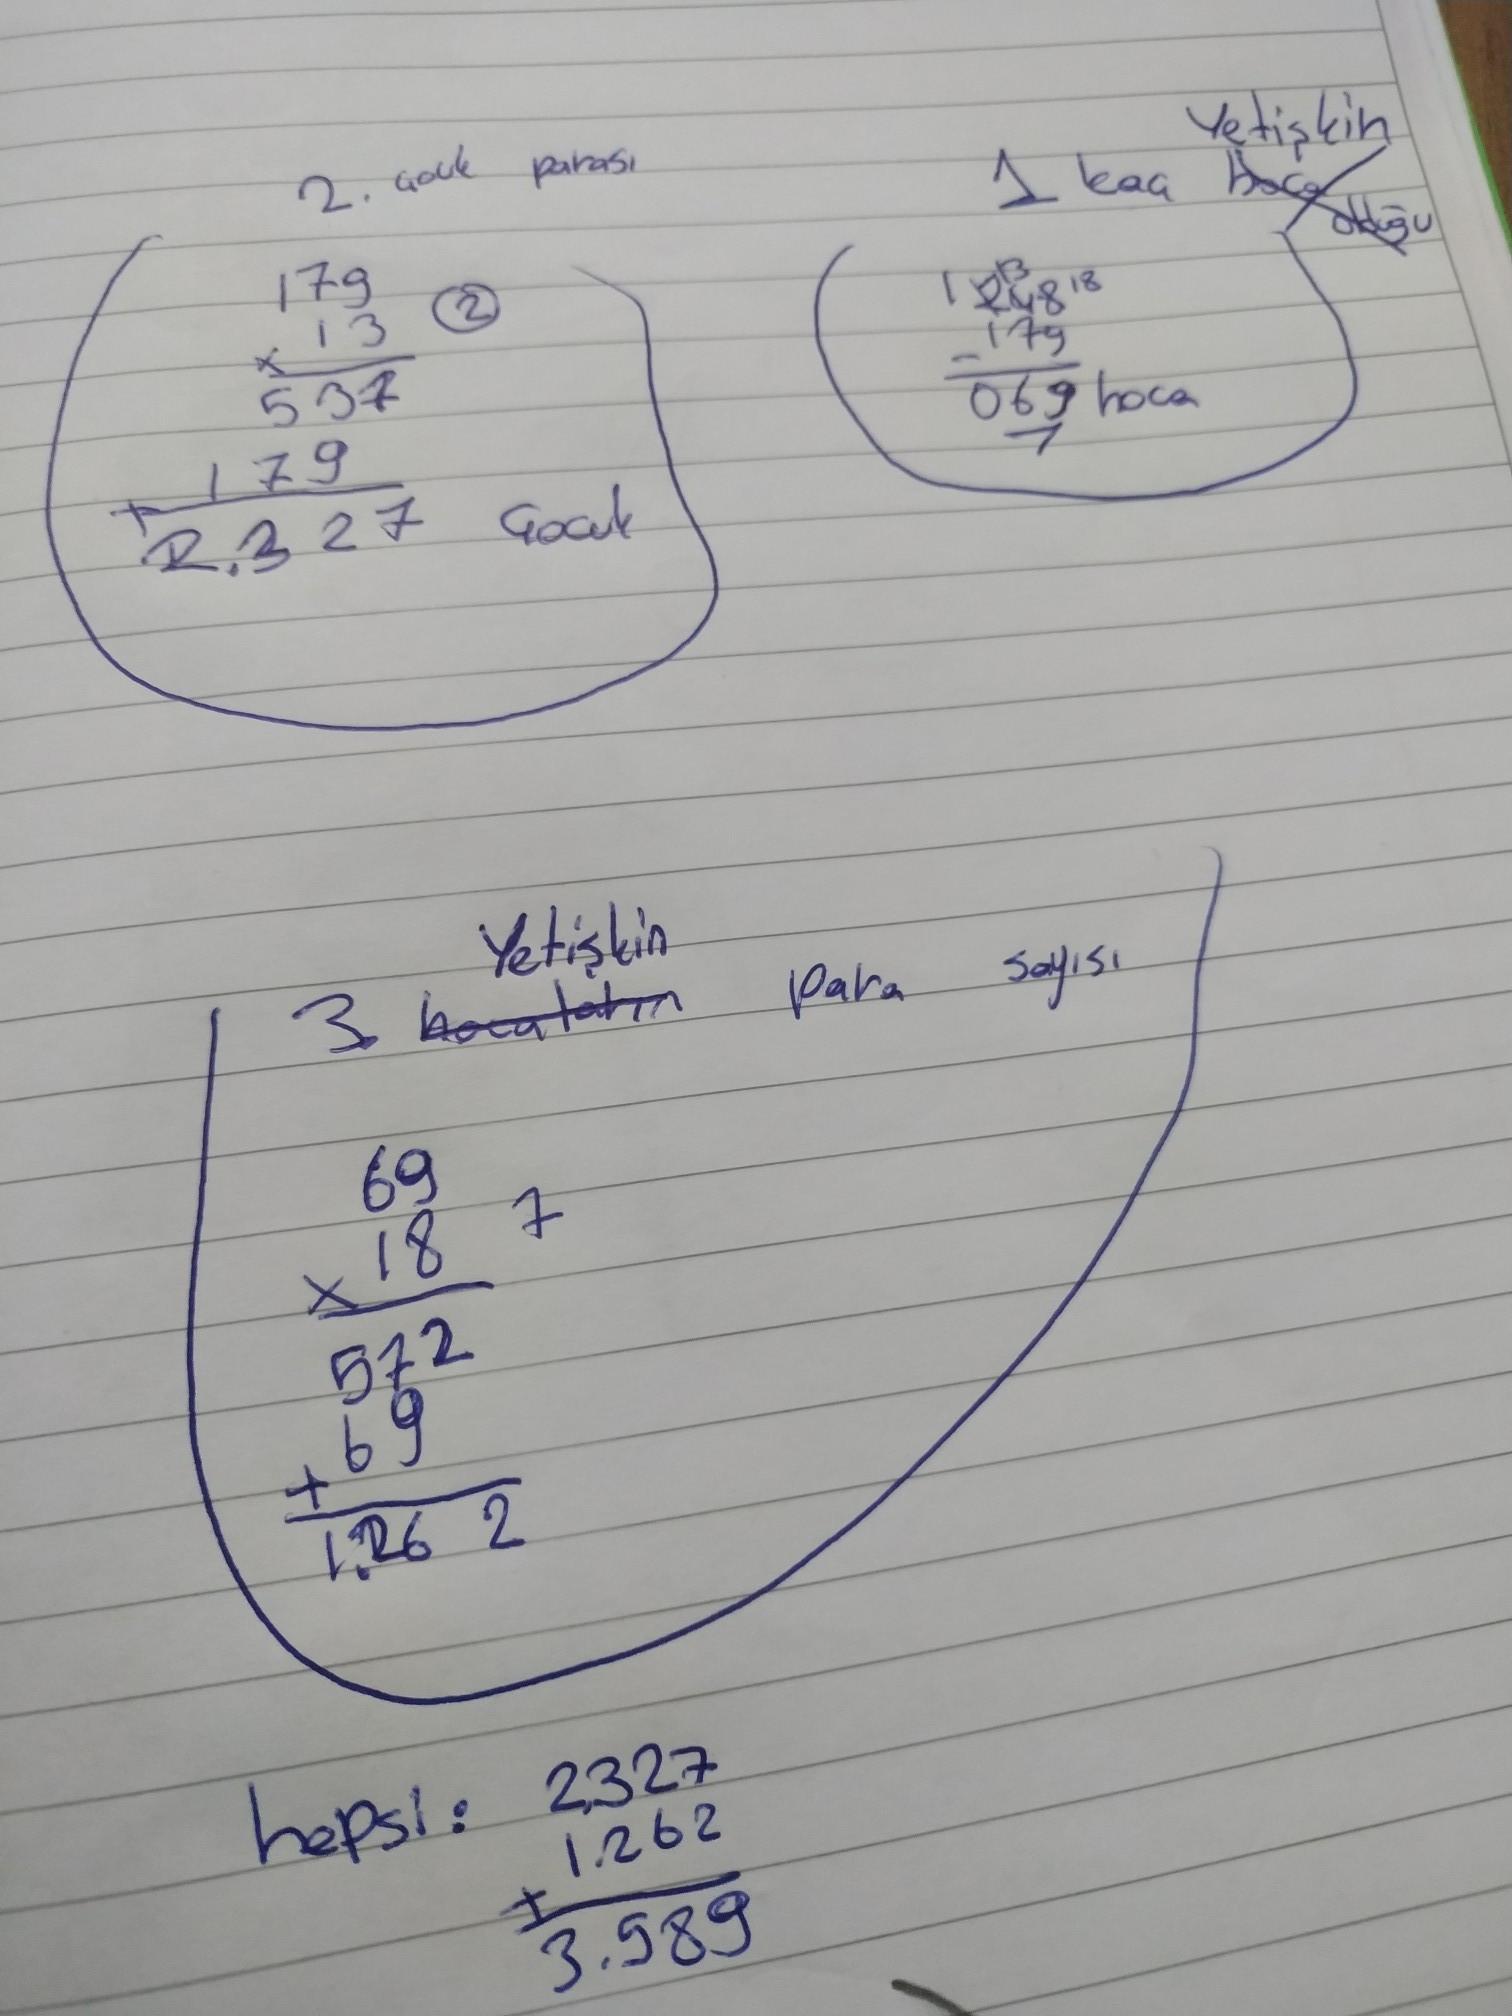 2. çocuk parası
179
x 13 ②
537
+ 179
2.327 Çocuk
Yetişkin
1 kaç hoca olduğu
1 13 18
248
- 179
069 hoca
Yetişkin
3. hocaların para sayısı
69
x 18 7
572
+ 69
1.262
hepsi: 2327
+ 1.262
3.589